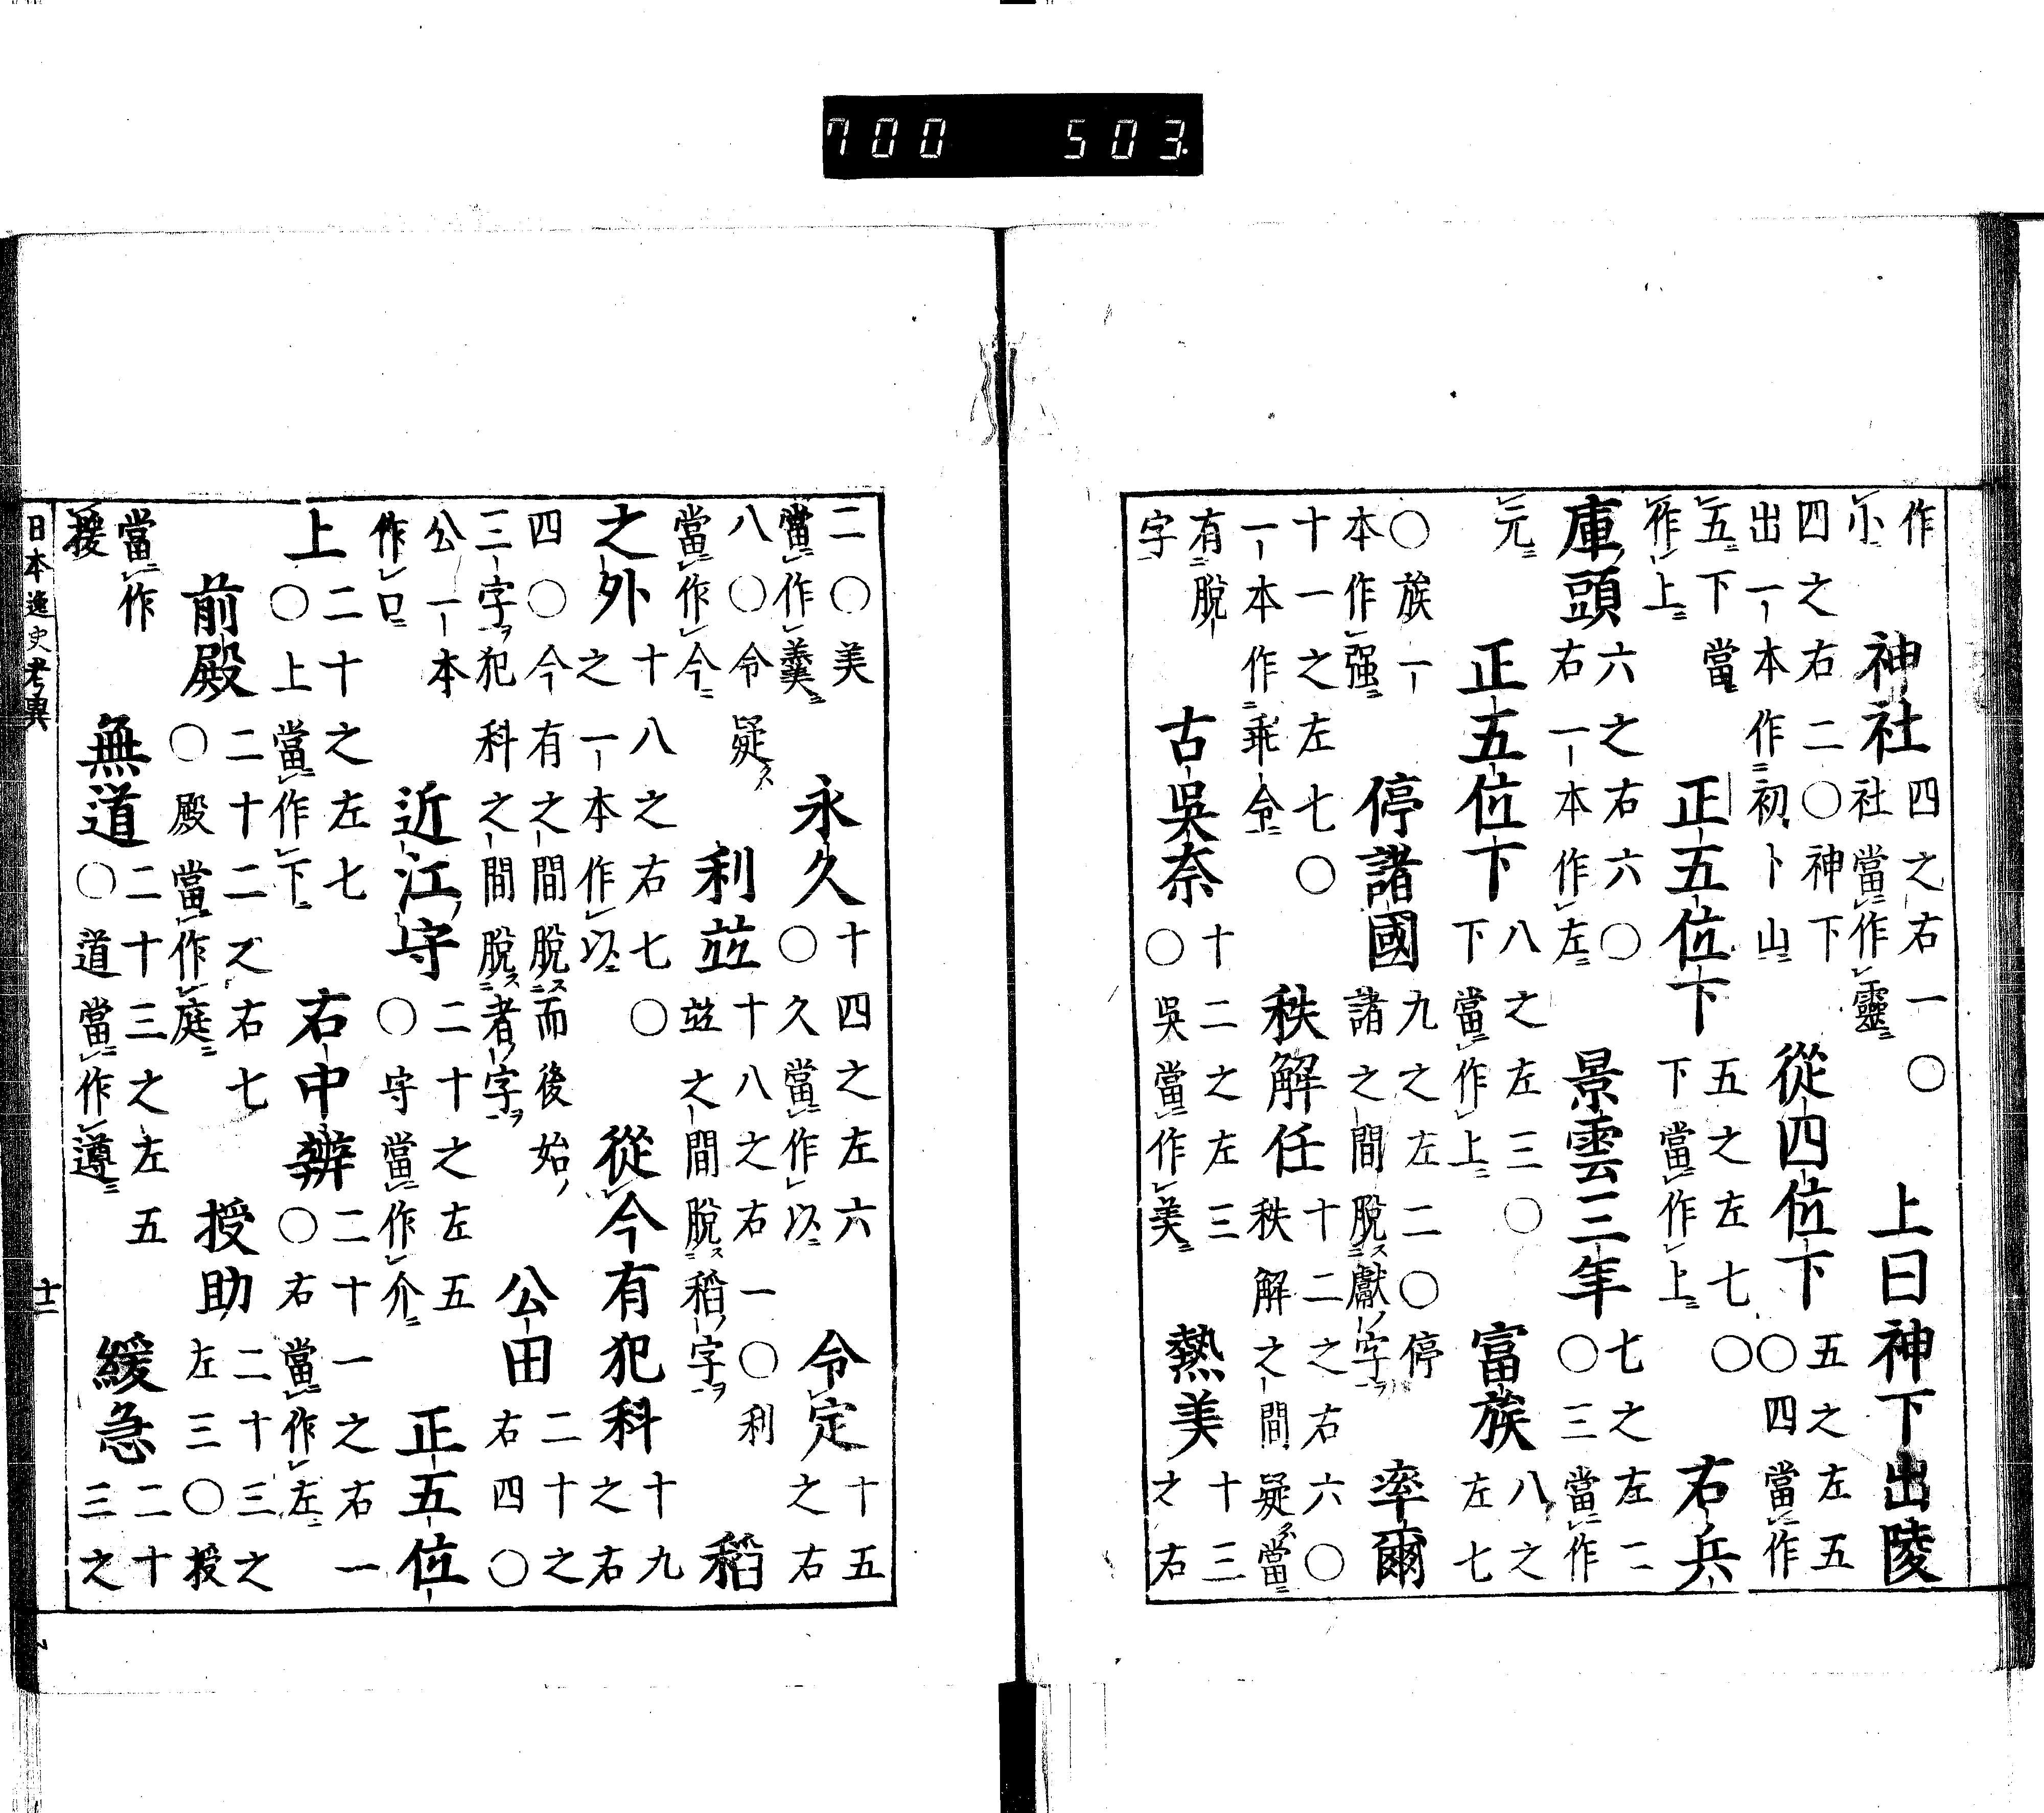 700 503
作尓神社四之右一〇社當作靈上曰神下出陵
四之右二〇神下出一本作初卜山從四位下五之左五〇四當作
五下當作上正五位下五之左七〇下當作上右兵
庫頭六之右六〇右一本作左景雲三年七之左二〇三當作
元正五位下八之左三〇下當作上富族八之左七
〇族一本作强停諸國九之左二〇停諸之間脱獻字率爾
十一之左七〇一本作乖令秩解任十二之右六〇秩解之間疑當
有脱字古吳奈十二之左三〇吳當作美熱美十三之右
二〇美當作羹永久十四之左六〇久當作以令定十五之右
八〇令疑當作今利竝十八之右一〇利竝之間脱稻字稻
之外十八之右七〇之一本作以從今有犯科十九之右
四〇今有之間脱而後始三字犯科之間脱者字公田二十之右四〇
公一本作口近江守二十之左五〇守當作介正五位
上二十之左七〇上當作下右中辨二十一之右一〇右當作左
前殿二十二之右七〇殿當作庭授助二十三之左三〇授
當作援無道二十三之左五〇道當作導緩急二十三之
日本逸史考異 十二